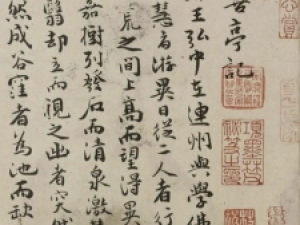 喜亭記
王弘中在連州與學佛
慧者游異日從二人者行
荒之間上高而望得異
嘉樹列發石而清泉激
翳却立而視之出者突然
然成谷窪者為池而缺